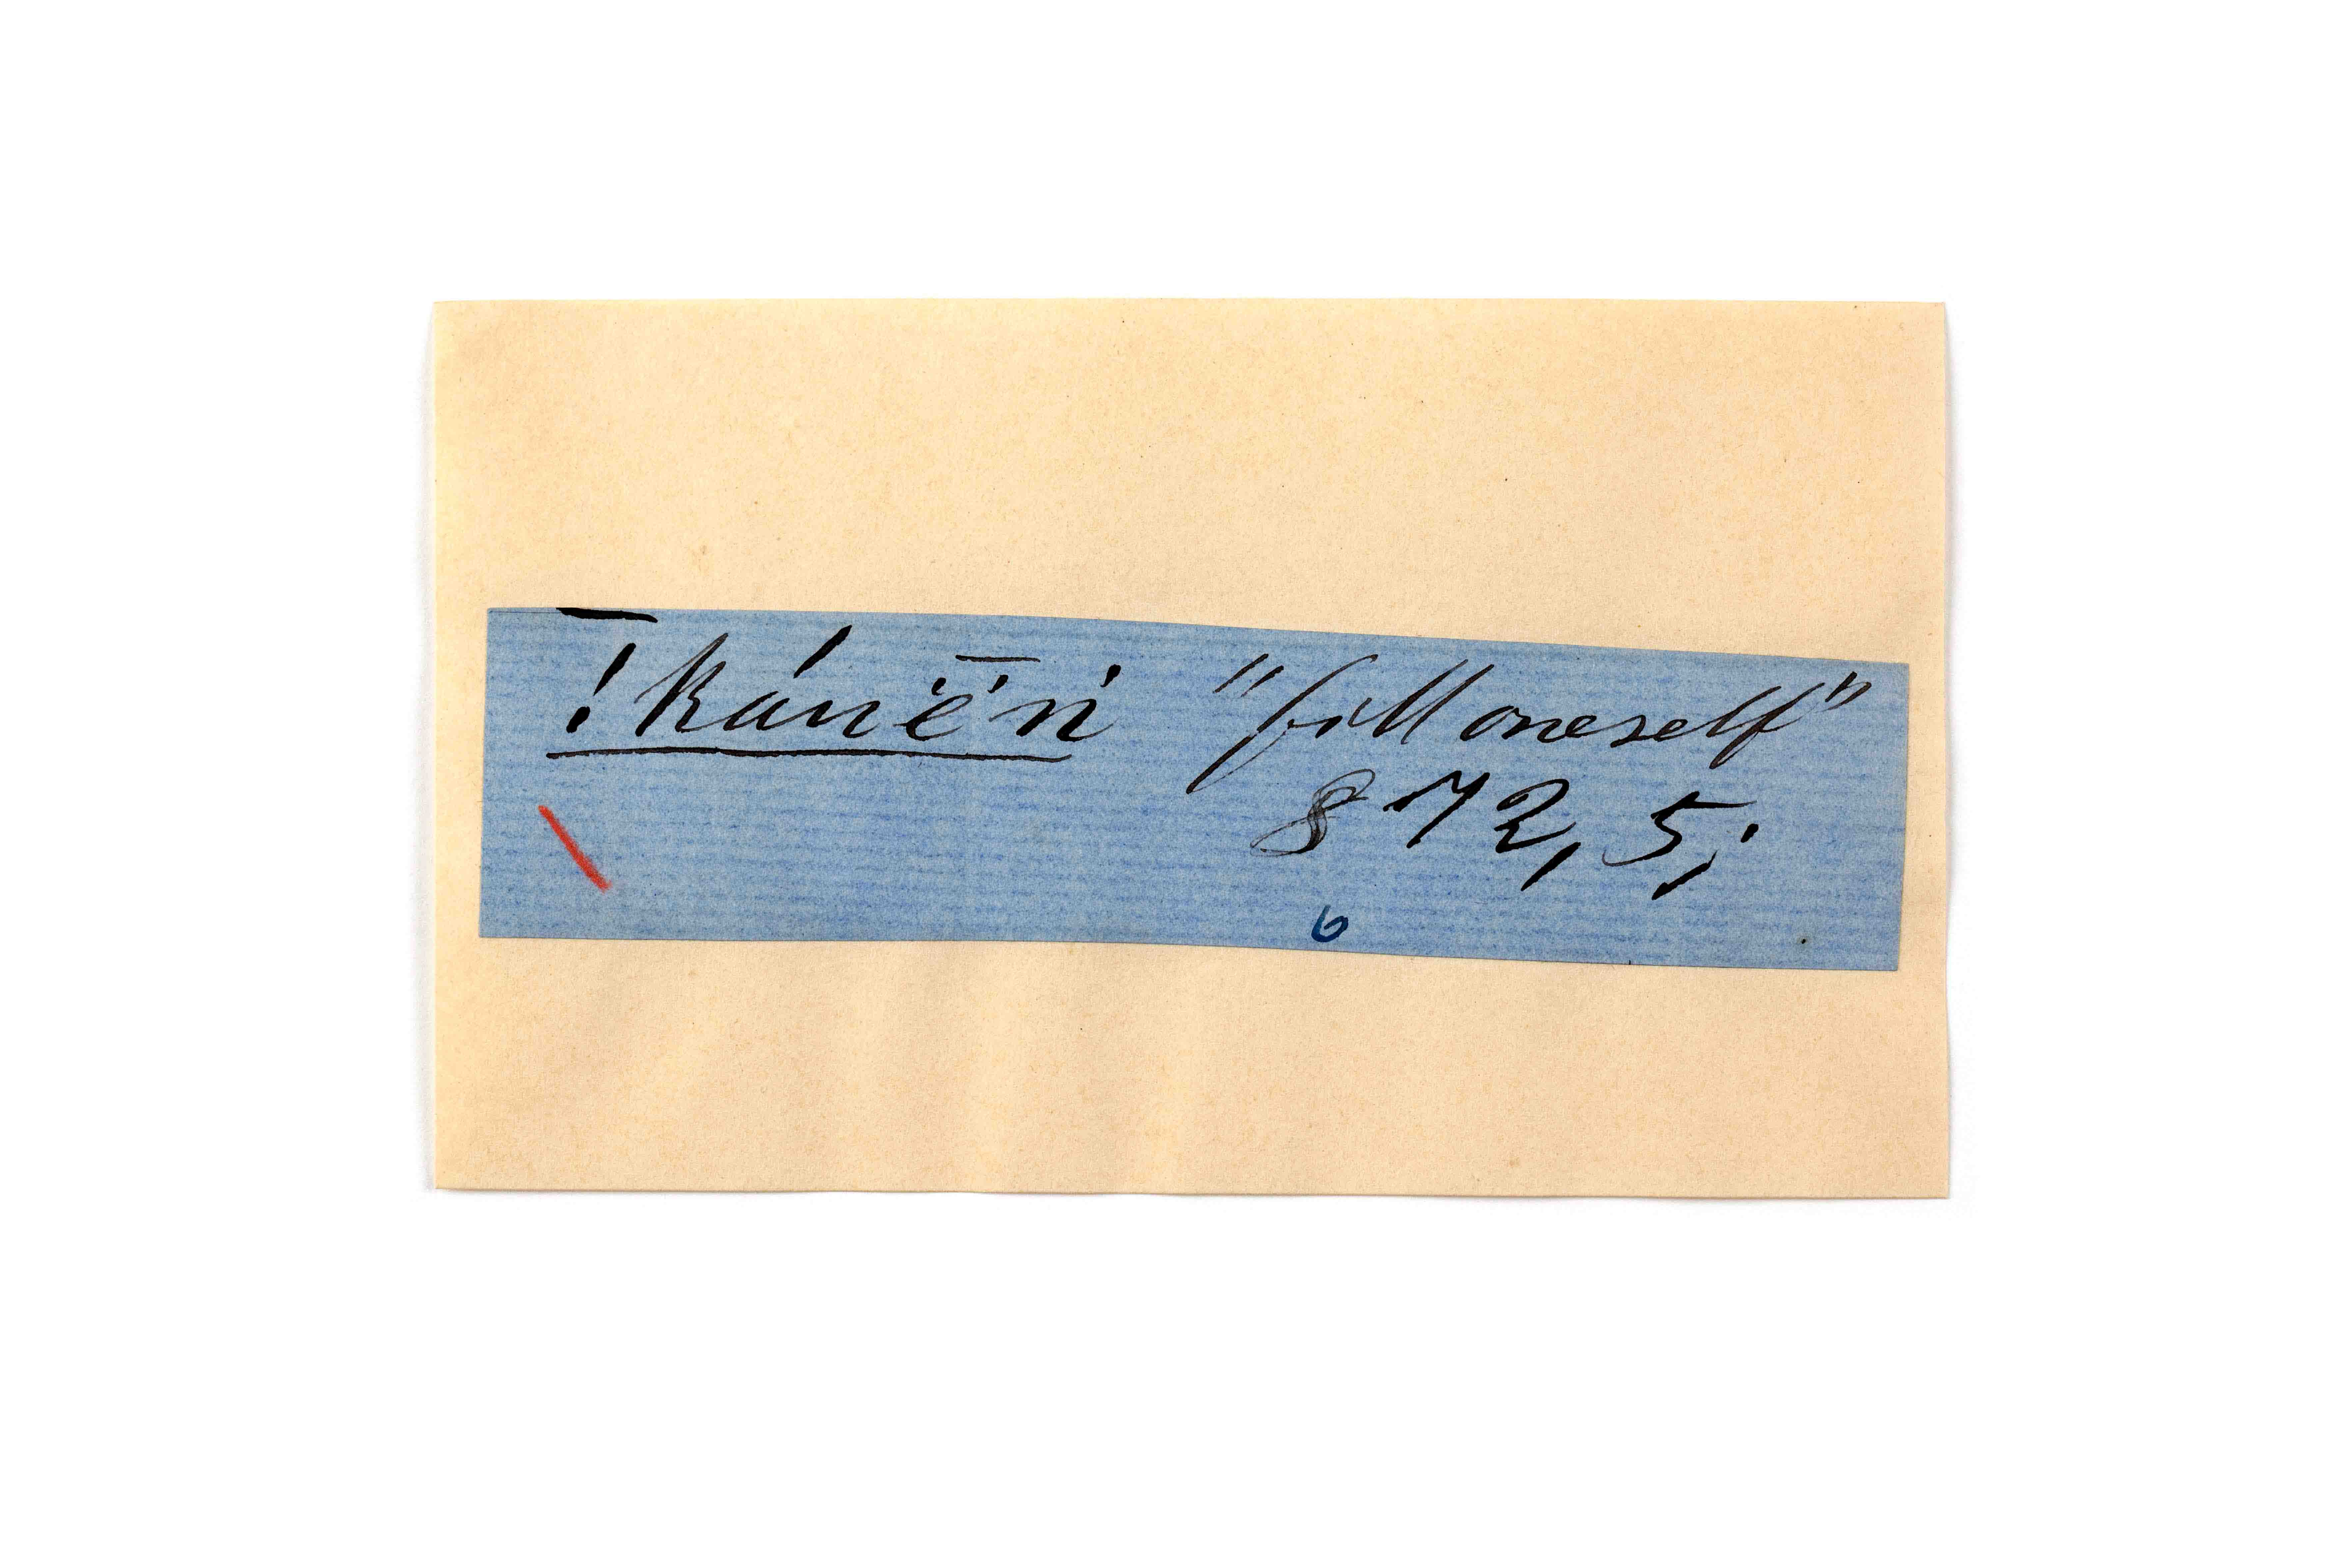 !kánën̄ "fill oneself"
872, 5;
6